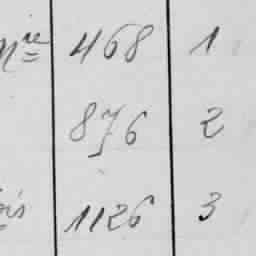 nre 468 1
876 2
ois 1126 3